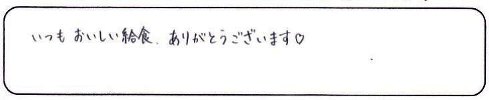 いつも おいしい給食、ありがとうございます♡